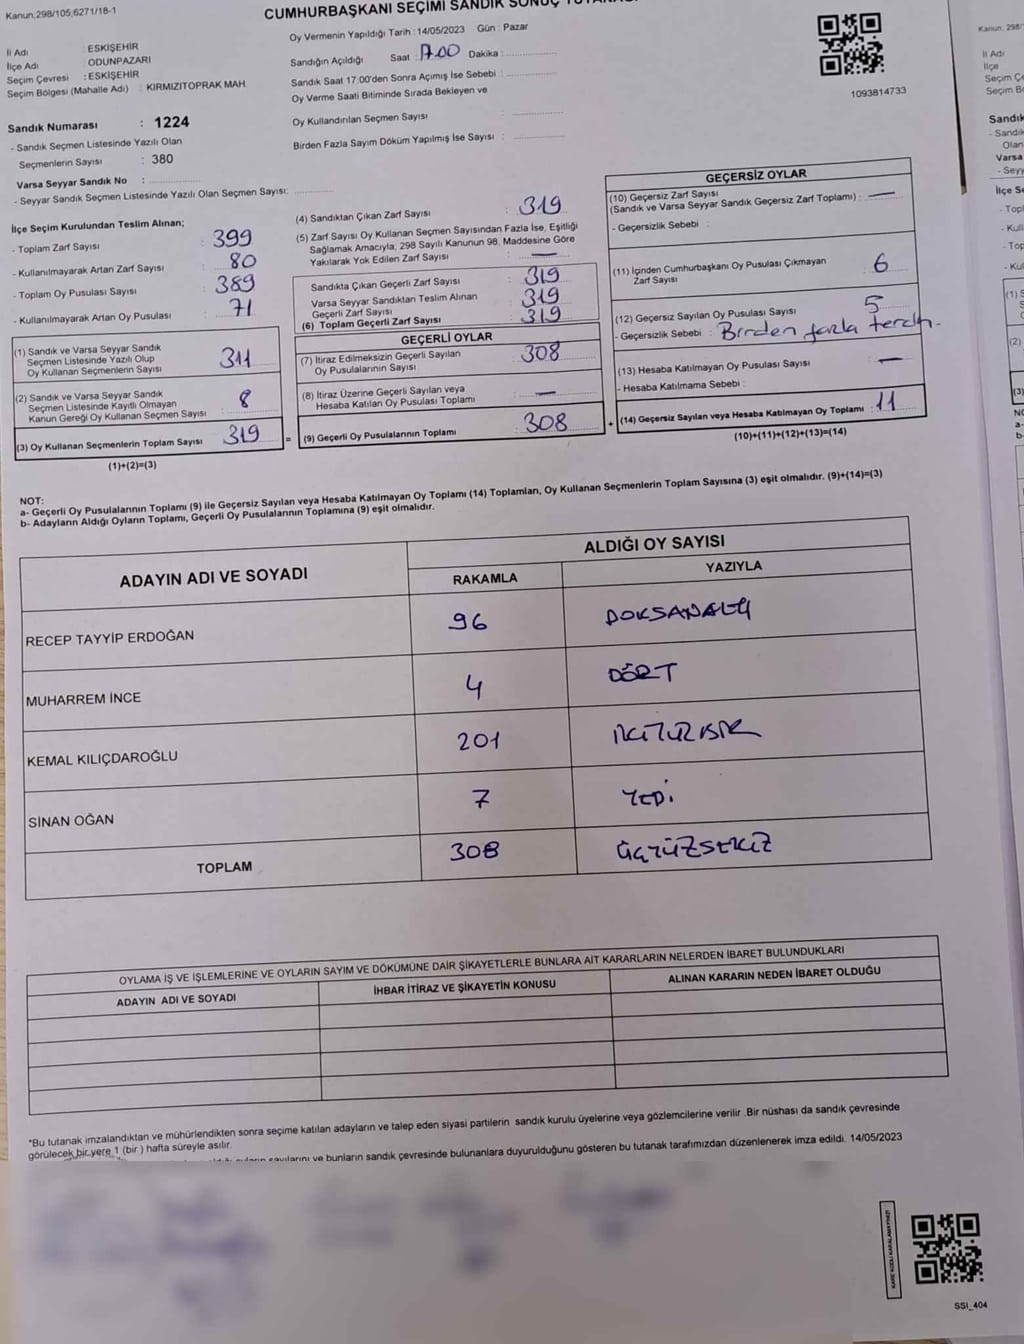 Kanun;298/105,6271/18-1
CUMHURBAŞKANI SEÇİMİ SANDIK SONUÇ
İl Adı : ESKİŞEHİR
İlçe Adı : ODUNPAZARI
Seçim Çevresi : ESKİŞEHİR
Seçim Bölgesi (Mahalle Adı) : KIRMIZITOPRAK MAH.
Sandık Numarası : 1224
- Sandık Seçmen Listesinde Yazılı Olan
Seçmenlerin Sayısı : 380
Varsa Seyyar Sandık No :
- Seyyar Sandık Seçmen Listesinde Yazılı Olan Seçmen Sayısı:
Oy Vermenin Yapıldığı Tarih : 14/05/2023 Gün : Pazar
Sandığın Açıldığı Saat : 17.00 Dakika :
Sandık Saat 17:00'den Sonra Açımış İse Sebebi :
Oy Verme Saati Bitiminde Sırada Bekleyen ve
Oy Kullandırılan Seçmen Sayısı :
Birden Fazla Sayım Döküm Yapılmış İse Sayısı :
1093814733
İlçe Seçim Kurulundan Teslim Alınan;
- Toplam Zarf Sayısı : 399
- Kullanılmayarak Artan Zarf Sayısı : 80
- Toplam Oy Pusulası Sayısı : 389
- Kullanılmayarak Artan Oy Pusulası : 71
(1) Sandık ve Varsa Seyyar Sandık
Seçmen Listesinde Yazılı Olup
Oy Kullanan Seçmenlerin Sayısı 311
(2) Sandık ve Varsa Seyyar Sandık
Seçmen Listesinde Kayıtlı Olmayan
Kanun Gereği Oy Kullanan Seçmen Sayısı 8
(3) Oy Kullanan Seçmenlerin Toplam Sayısı 319
(1)+(2)=(3)
(4) Sandıktan Çıkan Zarf Sayısı : 319
(5) Zarf Sayısı Oy Kullanan Seçmen Sayısından Fazla İse, Eşitliği
Sağlamak Amacıyla, 298 Sayılı Kanunun 98. Maddesine Göre
Yakılarak Yok Edilen Zarf Sayısı : —
Sandıkta Çıkan Geçerli Zarf Sayısı : 319
Varsa Seyyar Sandıktan Teslim Alınan
Geçerli Zarf Sayısı : 319
(6) Toplam Geçerli Zarf Sayısı : 319
GEÇERLİ OYLAR
(7) İtiraz Edilmeksizin Geçerli Sayılan
Oy Pusulalarının Sayısı : 308
(8) İtiraz Üzerine Geçerli Sayılan veya
Hesaba Katılan Oy Pusulası Toplamı : —
= (9) Geçerli Oy Pusulalarının Toplamı : 308
GEÇERSİZ OYLAR
(10) Geçersiz Zarf Sayısı
(Sandık ve Varsa Seyyar Sandık Geçersiz Zarf Toplamı) : —
- Geçersizlik Sebebi :
(11) İçinden Cumhurbaşkanı Oy Pusulası Çıkmayan
Zarf Sayısı : 6
(12) Geçersiz Sayılan Oy Pusulası Sayısı : 5
- Geçersizlik Sebebi : Birden fazla tercih.
(13) Hesaba Katılmayan Oy Pusulası Sayısı : —
- Hesaba Katılmama Sebebi :
+ (14) Geçersiz Sayılan veya Hesaba Katılmayan Oy Toplamı : 11
(10)+(11)+(12)+(13)=(14)
NOT:
a- Geçerli Oy Pusulalarının Toplamı (9) ile Geçersiz Sayılan veya Hesaba Katılmayan Oy Toplamı (14) Toplamları, Oy Kullanan Seçmenlerin Toplam Sayısına (3) eşit olmalıdır. (9)+(14)=(3)
b- Adayların Aldığı Oyların Toplamı, Geçerli Oy Pusulalarının Toplamına (9) eşit olmalıdır.
ADAYIN ADI VE SOYADI
ALDIĞI OY SAYISI
RAKAMLA YAZIYLA
RECEP TAYYİP ERDOĞAN 96 DOKSANALTI
MUHARREM İNCE 4 DÖRT
KEMAL KILIÇDAROĞLU 201 İKİYÜZBİR
SİNAN OĞAN 7 YEDİ
TOPLAM 308 ÜÇYÜZSEKİZ
OYLAMA İŞ VE İŞLEMLERİNE VE OYLARIN SAYIM VE DÖKÜMÜNE DAİR ŞİKAYETLERLE BUNLARA AİT KARARLARIN NELERDEN İBARET BULUNDUKLARI
ADAYIN ADI VE SOYADI İHBAR İTİRAZ VE ŞİKAYETİN KONUSU ALINAN KARARIN NEDEN İBARET OLDUĞU
*Bu tutanak imzalandıktan ve mühürlendikten sonra seçime katılan adayların ve talep eden siyasi partilerin sandık kurulu üyelerine veya gözlemcilerine verilir .Bir nüshası da sandık çevresinde
görülecek bir yere 1 (bir ) hafta süreyle asılır.
sayılarını ve bunların sandık çevresinde bulunanlara duyurulduğunu gösteren bu tutanak tarafımızdan düzenlenerek imza edildi. 14/05/2023
KARE KODU KARALAMAYINIZ!
SSI_404
Kanun; 298/
İl Adı
İlçe
Seçim Çe
Seçim Bö
Sandık